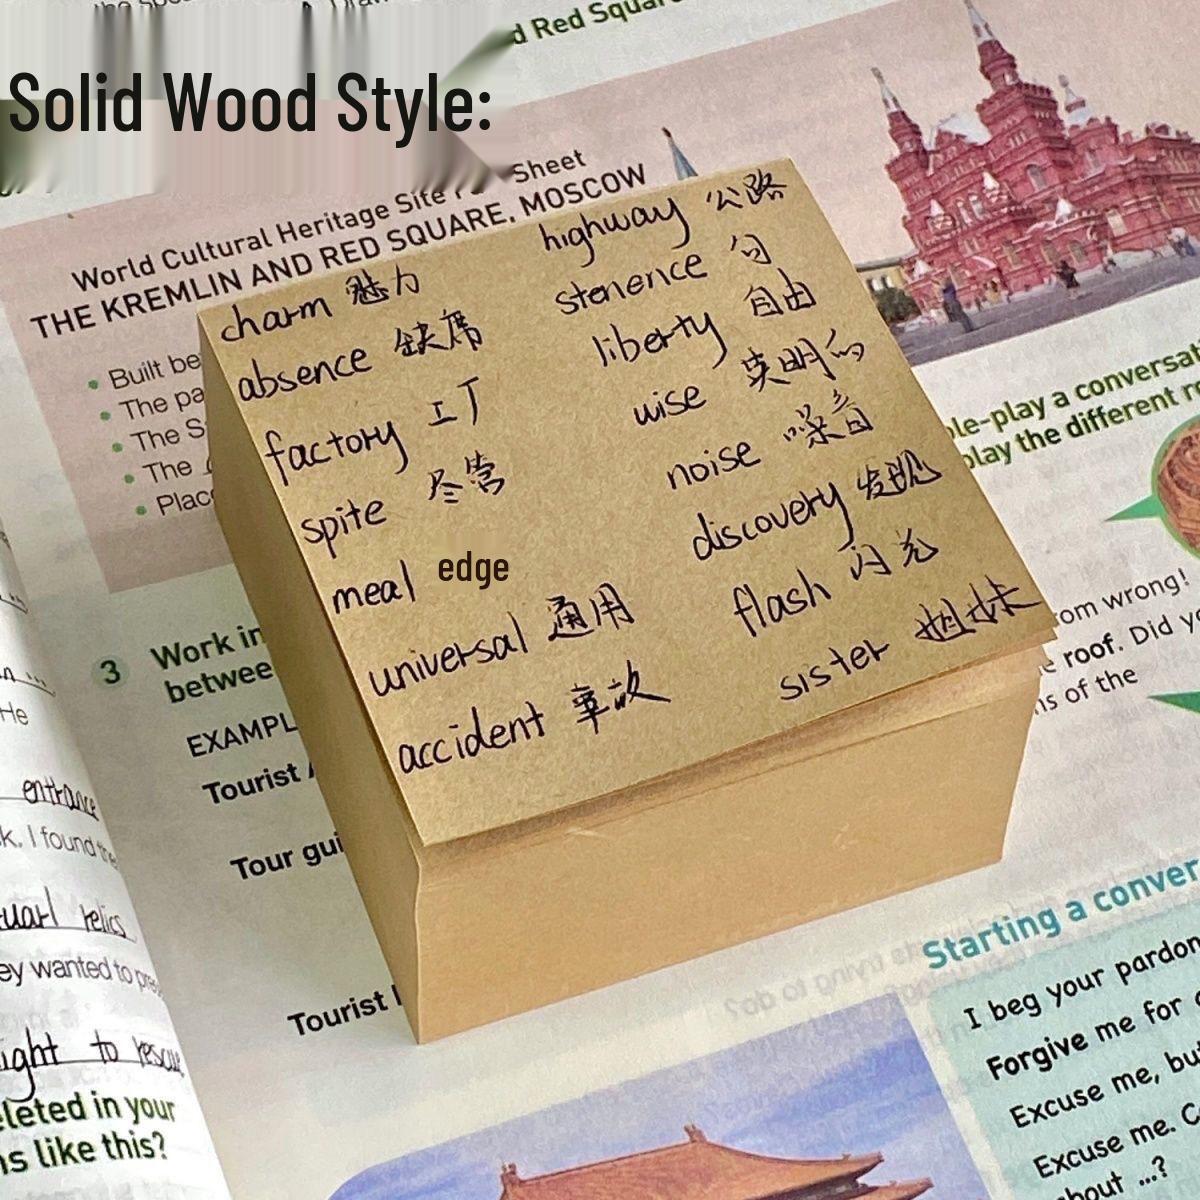 d Red Squar
Solid Wood Style:
World Cultural Heritage Site Sheet
THE KREMLIN AND RED SQUARE, MOSCOW
Built be
The pa
The S
The
Plac
charm 魅力
absence 缺席
factory 工厂
spite 尽管
meal edge
universal 通用
accident 事故
highway 公路
stenence 句
liberty 自由
wise 英明的
noise 噪音
discovery 发现
flash 闪光
sister 姐妹
le-play a conversati
play the different r
3 Work in
betwee
EXAMPL
Tourist
Tour gui
Tourist
om wrong!
roof. Did yo
ns of the
He
entrance
k, I found the
relics
ey wanted to pre
ight to rescue
eleted in your
ns like this?
Starting a conver
I beg your pardon
Forgive me for
Excuse me, but
Excuse me. C
bout ...?